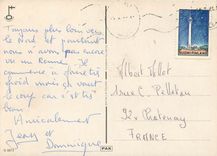 Toujours plus loin vers
le Nord et pourtant
nous n'avons pas encore
vu un Renne. Il
commence à faire très
froid mais ça vaut le
coup car c'est très
beau
Amicalement
Jean et
Dominique
SUOMI FINLAND
Albert Hollot
rue C. Pelletan
92 Chatenay
FRANCE
PAR